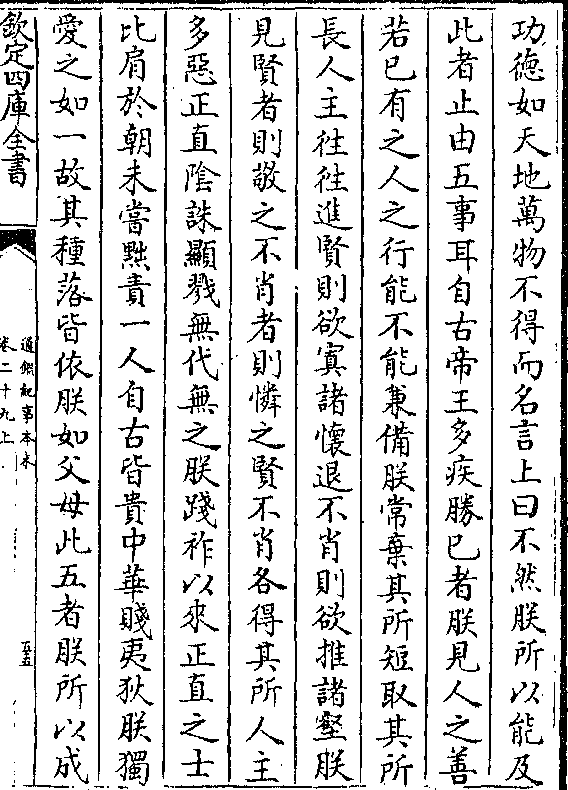 功德如天地萬物不得而名言上曰不然朕所以能及
此者止由五事耳自古帝王多疾勝已者朕見人之善
若已有之人之行能不能兼備朕常棄其所短取其所
長人主往往進賢則欲寘諸懷退不肖則欲推諸壑朕
見賢者則敬之不肖者則憐之賢不肖各得其所人主
多惡正直隂誅顯戮無代無之朕踐祚以來正直之士
比肩於朝未嘗黜責一人自古皆貴中華賤夷狄朕獨
愛之如一故其種落皆依朕如父母此五者朕所以成
欽定四庫全書
通鑑紀事本末
卷二十九上
五五